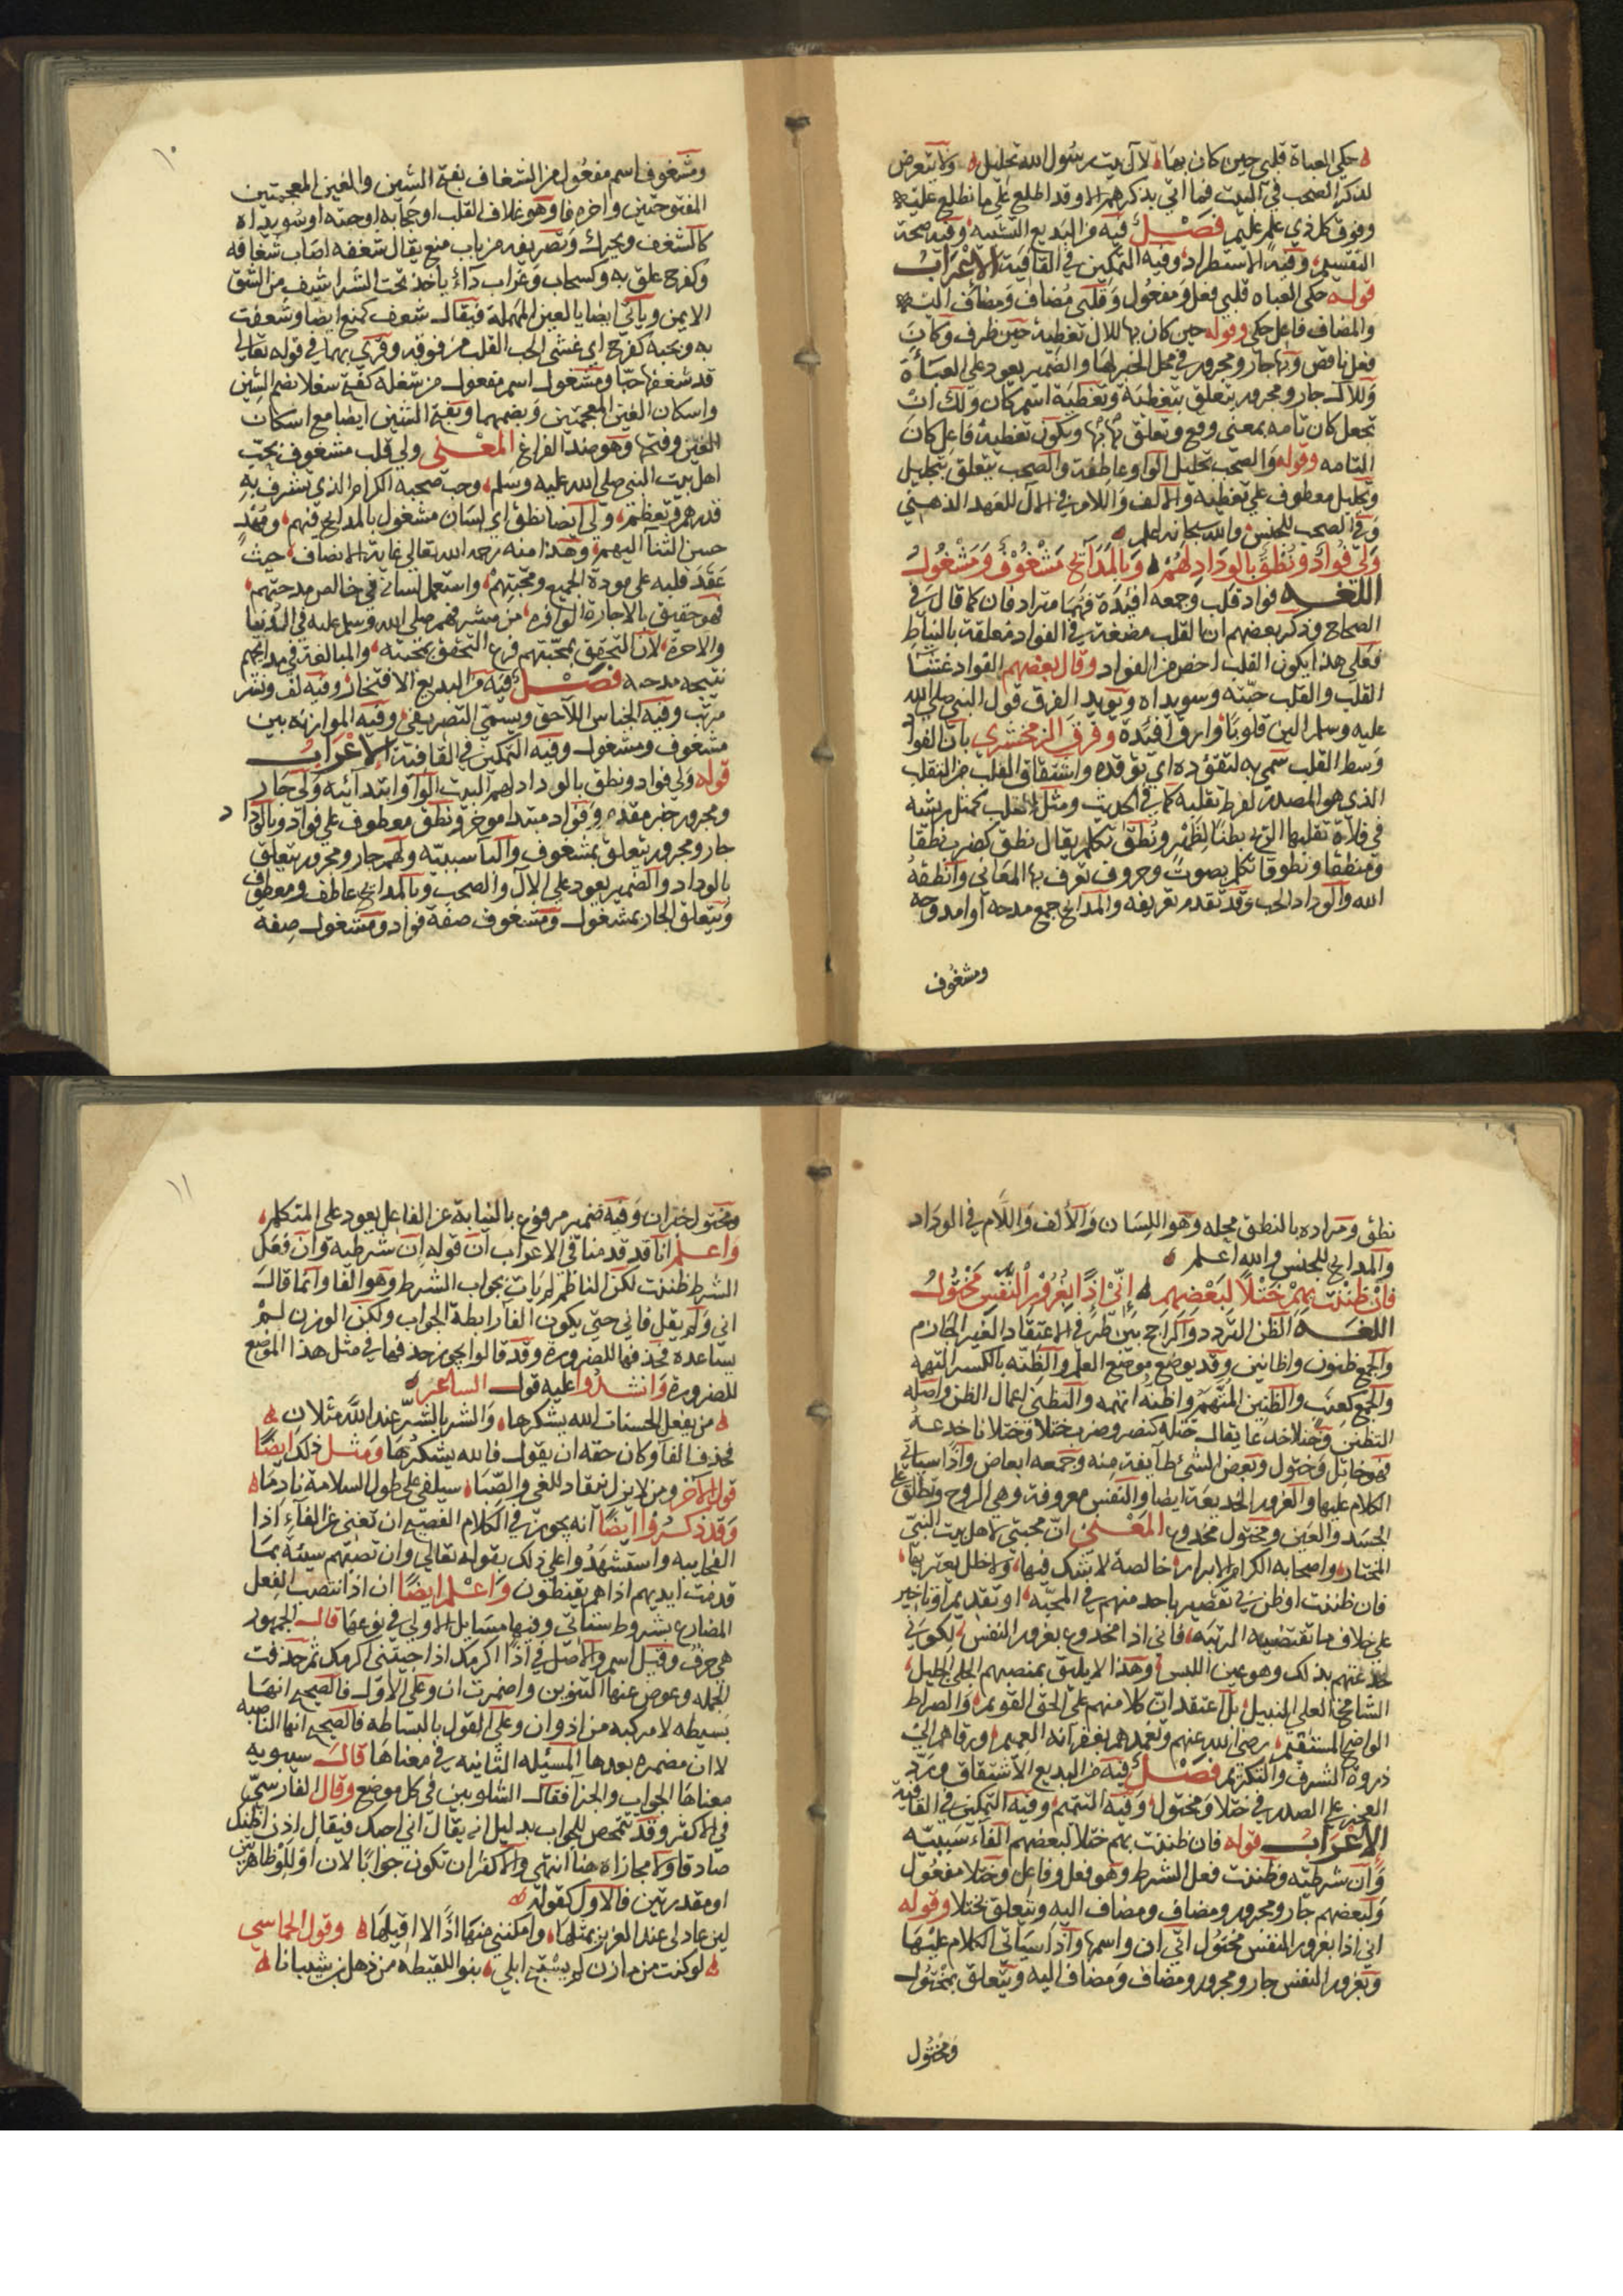 حكى العباة قلبي حين كان بها لآل بيت رسول الله تجليل ولا يتعرض
لذكر الصحب في البيت فما اتي بذكرهم الا وقد اطلع على ما نطلع عليه
وفوق كل ذي علم عليم فصل فيه من البديع التشبيه وفيه صحة
التقسيم وفيه الاستطراد وفيه التمكين في القافية الاعراب
قوله حكى العباه قلبي فعل ومفعول وقلبي مضاف ومضاف اليه
والمضاف فاعل حكى وقوله حين كان بها للال تغطية حين ظرف وكان
فعل ناقص وبها جار ومجرور في محل الخبر لها والضمير يعود على العباة
وللآل جار ومجرور يتعلق بتغطية وتغطية اسم كان ولك ان
تجعل كان تامه بمعنى وقع وتعلق بها بها ويكون تغطية فاعل كان
التامه وقوله والصحب تجليل الواو عاطفة والصحب يتعلق بتجليل
وتجليل معطوف على تغطية والالف واللام في الآل للعهد الذهني
وفي الصحب للجنس والله سبحانه اعلم
ولي فواد ونطق بالوداد لهم وبالمدائح مشغوف ومشغول
اللغه فواد قلب وجمعه افئدة فهما مترادفان كما قال في
الصحاح وذكر بعضهم ان القلب مضغة في الفواد معلقة بالنياط
فعلى هذا يكون القلب اخص من الفواد وقال بعضهم الفواد غشا
القلب والقلب حبته وسويداه ويويد الفرق قول النبي صلى الله
عليه وسلم الين قلوبا وارق افئدة وفرق الزمخشري بان الفواد
وسط القلب سمي به لتفؤده اي توقده واشتقاق القلب من التقلب
الذي هو المصدر لفرط تقلبه كما في الحديث ومثل القلب كمثل ريشه
في فلاة تقلبها الريح بطنا لظهر ونطق تكلم يقال نطق كضرب نطقا
ومنطقا ونطوقا تكلم بصوت وحروف تعرف بها المعاني وانطقه
الله والوداد الحب وقد تقدم تعريفه والمدائح جمع مدحه او امدوحه
ومشغوف
١٠
ومشغوف اسم مفعول من الشغاف بفتح الشين والغين المعجمتين
المفتوحتين واخره فا وهو غلاف القلب او حجابه او حبته او سويداه
كالشغف ويحرك وتصريفه من باب منع يقال شغفه اصاب شغافه
وكفرح علق به وكسحاب وغراب داء ياخذ تحت الشراشيف من الشق
الايمن وياتي ايضا بالعين المهملة فيقال شعف كمنع ايضا وشعفت
به وبحبه كفرح اي غشي الحب القلب من فوقه وقرئ بهما في قوله تعالى
قد شغفها حبا ومشغول اسم مفعول من شغله كفتح شغلا بضم الشين
واسكان الغين المعجمتين وبضمهما وبفتح الشين ايضا مع اسكان
الغين وفتحها وهو ضد الفراغ المعنى ولي قلب مشغوف بحب
اهل بيت النبي صلى الله عليه وسلم وحب صحبه الكرام الذي تتشرف به
قدرهم وتعظم ولي ايضا نطق اي لسان مشغول بالمدائح فيهم وقصد
حسن الثنا اليهم وهذا منه رحمه الله تعالى غاية الانصاف حيث
عقد قلبه على مودة الجميع ومحبتهم واستعمل لسانه في خالص مدحتهم
فهو حقيق بالاجارة الوافره من مشرفهم صلى الله وسلم عليه في الدنيا
والاخرة لان التحقق بمحبتهم فرع التحقق بمحبته والمبالغة في مدايحهم
نتيجة مدحه فصل فيه من البديع الافتخار وفيه لف ونشر
مرتب وفيه الجناس اللاحق ويسمى التصريفي وفيه الموازنه بين
مشغوف ومشغول وفيه التمكين في القافية الاعراب
قوله ولي فواد ونطق بالوداد لهم البيت الواو ابتدائيه ولي جار
ومجرور خبر مقدم وفواد مبتدا موخر ونطق معطوف على فواد وبالوداد
جار ومجرور يتعلق بمشغوف والبا سببيه ولهم جار ومجرور يتعلق
بالوداد والضمير يعود على الال والصحب وبالمدايح عاطف ومعطوف
ويتعلق الجار بمشغول ومشغوف صفة فواد ومشغول صفة
نطق ومراده بالنطق محله وهو اللسان والألف واللام في الوداد
والمدايح للجنس والله اعلم
فان ظننت بهم ختلا لبعضهم اني اذا بغرور النفس مختول
اللغه الظن التردد والراجح بين طرفي الاعتقاد الغير الجازم
والجمع ظنون واظانين وقد يوضع موضع العلم والظنه بالكسر التهمه
والجمع كعنب والظنين المتهم واظنه اتهمه والتظني اعمال الظن واصله
التظنن وختلا خدعا يقال ختله كنصر وضرب ختلا وختلانا خدعه
فهو خاتل وختول وبعض الشئ طائفة منه وجمعه ابعاض واذا سياتي
الكلام عليها والغرور الخديعة ايضا والنفس معروفة وهي الروح وتطلق على
الجسد والعين ومختول مخدوع المعنى ان محبتي لاهل بيت النبي
المختار واصحابه الكرام الابرار خالصة لا شك فيها ولا خلل يعتريها
فان ظننت او ظن بي تقصير باحد منهم في المحبه او تقديم او تاخير
على خلاف ما تقتضيه المرتبه فاني اذا مخدوع بغرور النفس لكوني
لخدعتهم بذلك وهو عين اللبس وهذا لا يليق بمنصبهم الجلي الجليل
الشامخ العلي النبيل بل اعتقد ان كلا منهم على الحق القويم والصراط
الواضح المستقيم رضي الله عنهم وتغمدهم بغفرانه العميم ورقاهم الى
ذروة الشرف والتكريم فصل فيه من البديع الاشتقاق ورد
العجز على الصدر في ختلا ومختول وفيه التتميم وفيه التمكين في القافية
الاعراب قوله فان ظننت بهم ختلا لبعضهم الفاء سببيه
وان شرطيه وظننت فعل الشرط وهو فعل وفاعل وختلا مفعول
ولبعضهم جار ومجرور ومضاف ومضاف اليه ويتعلق بختلا وقوله
اني اذا بغرور النفس مختول اني ان واسمها واذا سياتي الكلام عليها
وبغرور النفس جار ومجرور ومضاف ومضاف اليه ويتعلق بمختول
ومختول
١١
ومختول خبر ان وفيه ضمير مرفوع بالنيابة عن الفاعل يعود على المتكلم
واعلم انا قد قدمنا في الاعراب ان قوله ان شرطيه وان فعل
الشرط ظننت لكن الناظم لم يات بجواب الشرط وهو الفا وانما قال
اني ولم يقل فاني حتى يكون الفا رابطة الجواب ولكن الوزن لم
يساعده فحذفها للضرورة وقد قالوا يجوز حذفها في مثل هذا الموضع
للضرورة وانشدوا عليه قول الشاعر
من يفعل الحسنات الله يشكرها والشر بالشر عند الله مثلان
فحذف الفا وكان حقه ان يقول فالله يشكرها ومثل ذلك ايضا
قول الآخر ومن لا يزل ينقاد للغي والصبا سيلفى على طول السلامة نادما
وقد ذكروا ايضا انه يجوز في الكلام الفصيح ان تغني عن الفاء اذا
الفجاييه واستشهدوا على ذلك بقوله تعالى وان تصبهم سيئة بما
قدمت ايديهم اذا هم يقنطون واعلم ايضا ان اذا تنصب الفعل
المضارع بشروط ستاتي وفيها مسايل الاولى في نوعها قال الجمهور
هي حرف وقيل اسم والاصل في اذا اكرمك اذا جيتني اكرمك ثم حذفت
الجمله وعوض عنها التنوين واضمرت ان وعلى الاول فالصحيح انها
بسيطه لا مركبه من اذ وان وعلى القول بالبساطه فالصحيح انها الناصبه
لا ان مضمره بعدها المسئله الثانيه في معناها قال سيبويه
معناها الجواب والجزا فقال الشلوبين في كل موضع وقال الفارسي
في الاكثر وقد تتمحض للجواب بدليل انه يقال اني احبك فيقال اذن اظنك
صادقا ولا مجازاه هنا انتهى والاكثر ان تكون جوابا لان او للو ظاهرتين
او مقدرتين فالاول كقوله
لين عاد لي عبد العزيز بمثلها وامكنني منها اذا لا اقيلها وقول الحماسي
لو كنت من مازن لم يستبح ابلي بنو اللقيطه من ذهل بن شيبانا